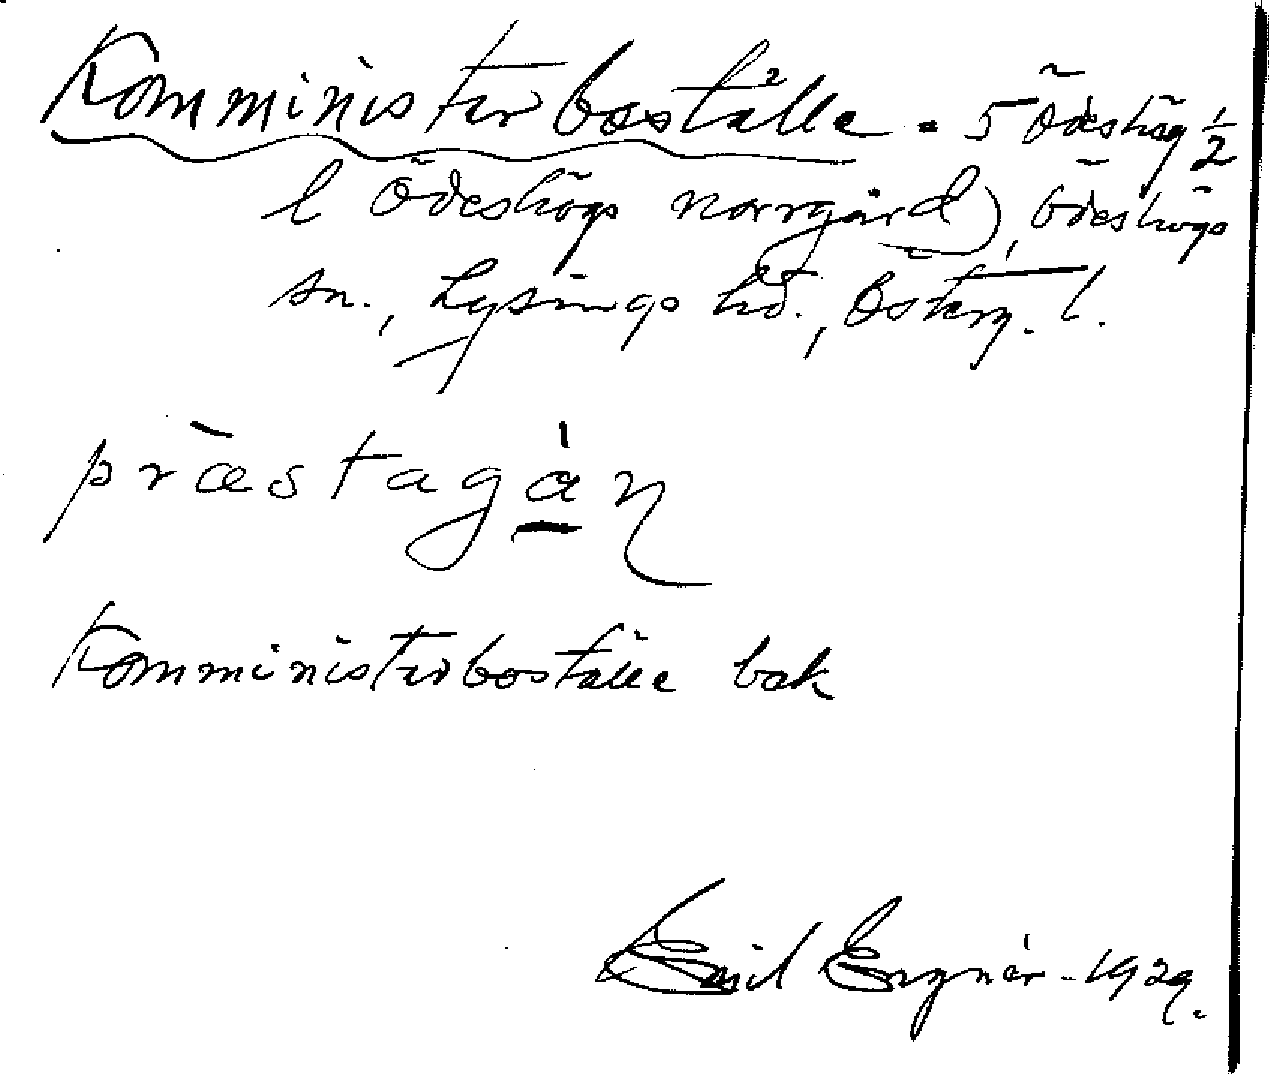 Komministerboställe = 5 Ödeshög 1/2
l Ödeshögs norrgård), Ödeshögs
sn., Lysings hd., Österg. l.
præstagán
Komministerboställe bak
Emil 1929.